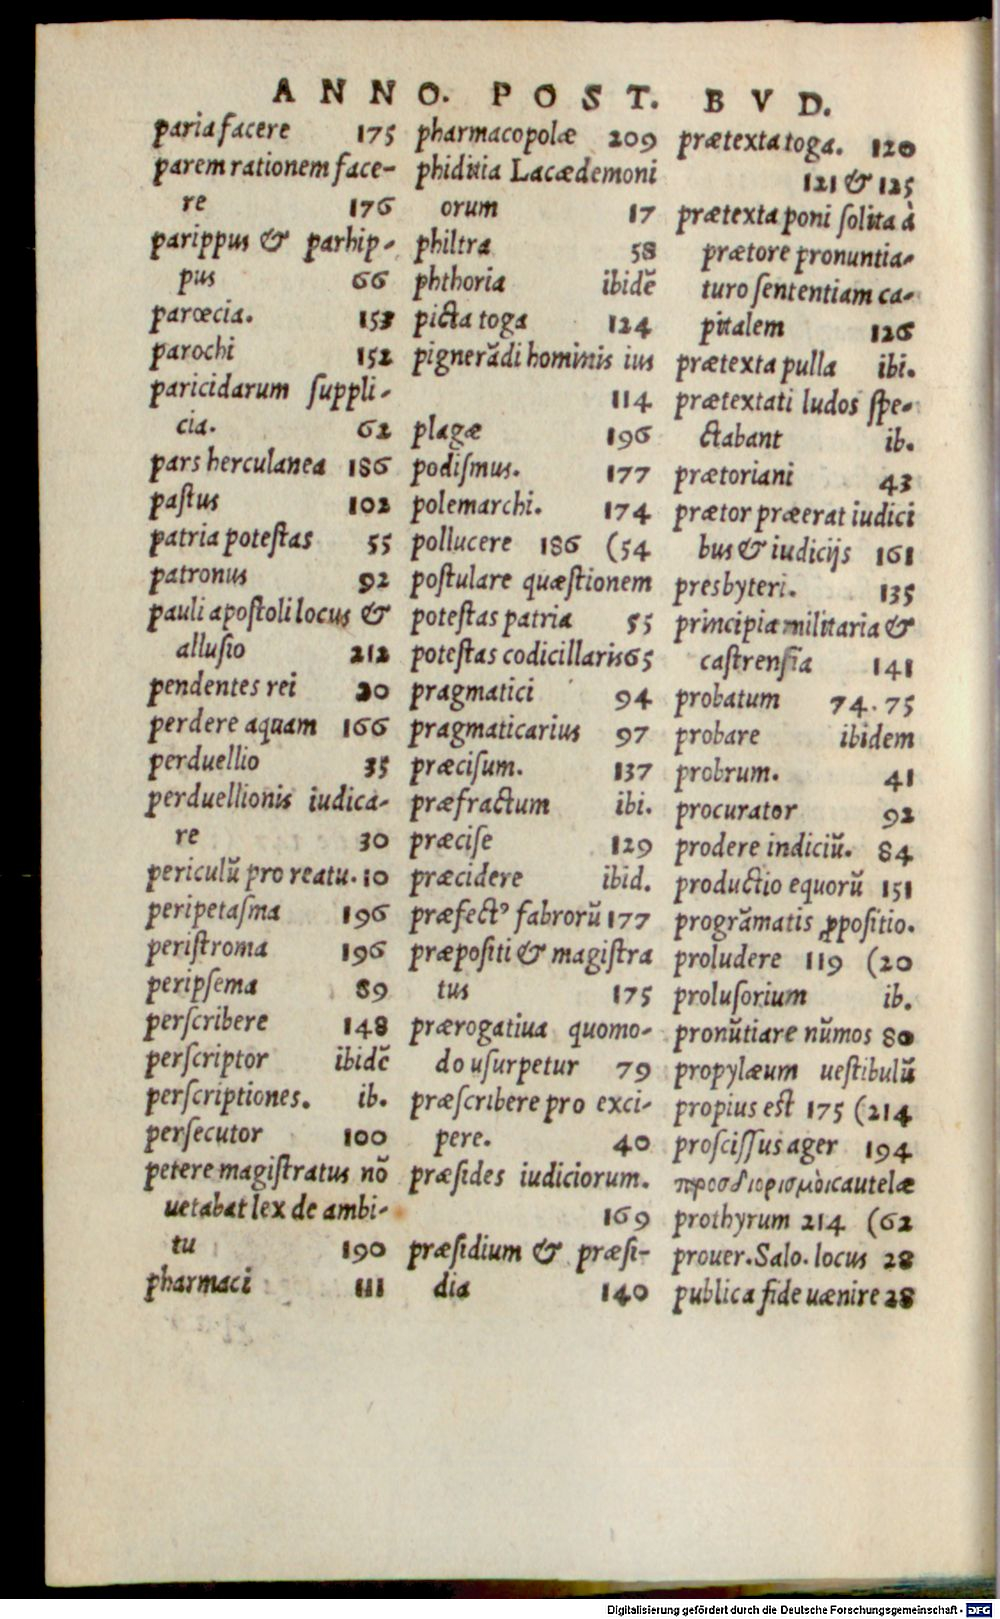 ANNO. POST. BVD.
paria facere 175
parem rationem face-
re 176
parippus & parhip-
pus 66
parœcia. 153
parochi 152
paricidarum suppli-
cia. 62
pars herculanea 186
pastus 102
patria potestas 55
patronus 92
pauli apostoli locus &
allusio 212
pendentes rei 20
perdere aquam 166
perduellio 35
perduellionis iudica-
re 30
periculũ pro reatu. 10
peripetasma 196
peristroma 196
peripsema 89
perscribere 148
perscriptor ibidẽ
perscriptiones. ib.
persecutor 100
petere magistratus nõ
uetabat lex de ambi-
tu 190
pharmaci 111
pharmacopolæ 209
phiditia Lacædemoni
orum 17
philtra 58
phthoria ibidẽ
picta toga 124
pignerãdi hominis ius
114
plagæ 196
podismus. 177
polemarchi. 174
pollucere 186 (54
postulare quæstionem
potestas patria 55
potestas codicillaris 65
pragmatici 94
pragmaticarius 97
præcisum. 137
præfractum ibi.
præcise 129
præcidere ibid.
præfectꝰ fabrorũ 177
præpositi & magistra
tus 175
prærogatiua quomo-
do usurpetur 79
præscribere pro exci-
pere. 40
præsides iudiciorum.
169
præsidium & præsi-
dia 140
prætexta toga. 120
121 & 125
prætexta poni solita à
prætore pronuntia-
turo sententiam ca-
pitalem 126
prætexta pulla ibi.
prætextati ludos spe-
ctabant ib.
prætoriani 43
prætor præerat iudici
bus & iudicijs 161
presbyteri. 135
principia militaria &
castrensia 141
probatum 74. 75
probare ibidem
probrum. 41
procurator 92
prodere indiciũ. 84
productio equorũ 151
progrãmatis ꝓpositio.
proludere 119 (20
prolusorium ib.
pronũtiare nũmos 80
propylæum uestibulũ
propius est 175 (214
proscissus ager 194
προσδιορισμὸι cautelæ
prothyrum 214 (62
prouer. Salo. locus 28
publica fide uænire 28
Digitalisierung gefördert durch die Deutsche Forschungsgemeinschaft - DFG